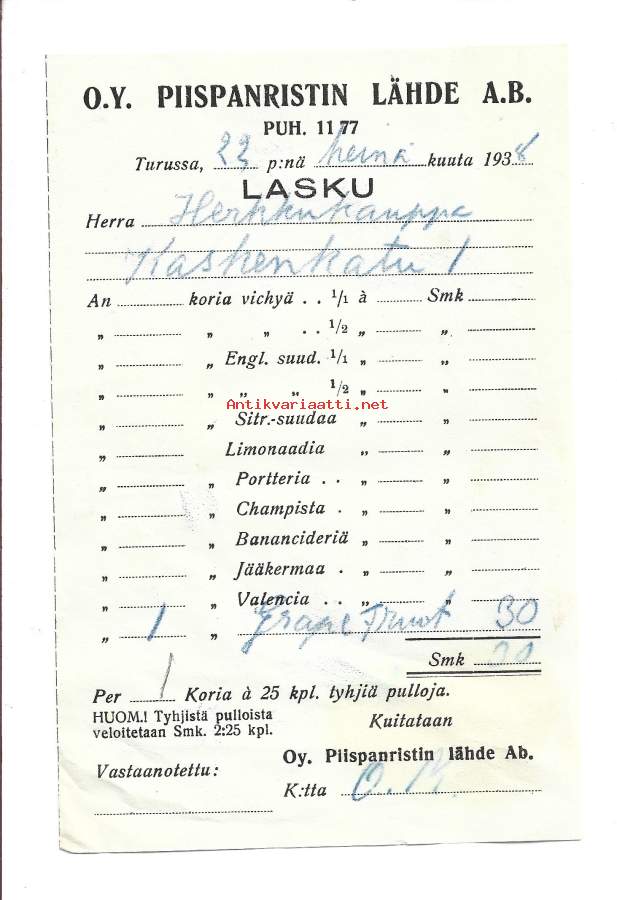 O.Y. PIISPANRISTIN LÄHDE A.B.
PUH. 11 77
Turussa, 22 p:nä heinä kuuta 1938
LASKU
Herra Herkkukauppa
Kaskenkatu 1
An koria vichyä . . 1/1 à Smk
„ „ „ . . 1/2 „ „
„ „ Engl. suud. 1/1 „ „
„ „ „ „ 1/2 „ „
Antikvariaatti.net
„ „ Sitr.-suudaa „ „
„ Limonaadia „ „
„ „ Portteria . . „ „
„ „ Champista . „ „
„ „ Banancideriä „ „
„ „ Jääkermaa . „ „
„ „ Valencia . . „ „
„ 1 „ Grape Fruot 30
Smk 30
Per 1 Koria à 25 kpl. tyhjiä pulloja.
HUOM.! Tyhjistä pulloista
veloitetaan Smk. 2:25 kpl.
Kuitataan
Oy. Piispanristin lähde Ab.
Vastaanotettu:
K:tta O.